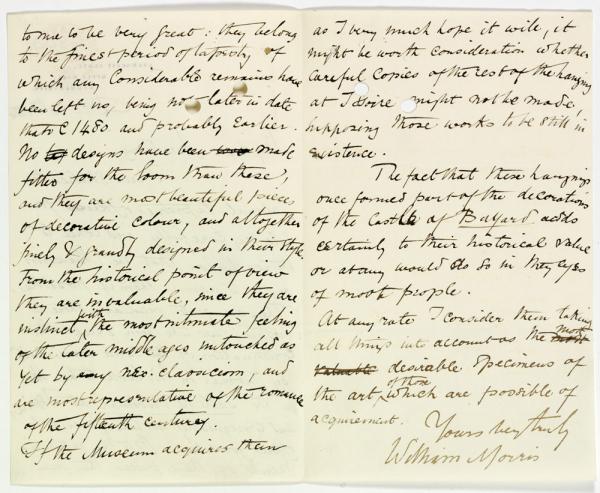 to me to be very great: they belong
to the finest period of tapestry, of
which any considerable remains have
been left us, being not later in date
than C 1480 and probably earlier.
No designs have been made
fitter for the loom than these,
and they are most beautiful pieces
of decorative colour, and altogether
finely & grandly designed in their style.
From the historical point of view
they are invaluable, since they are
instinct with the most intimate feeling
of the later middle ages untouched as
yet by any neo-classicism, and
are most representative of the romance
of the fifteenth century.
If the Museum acquires them
as I very much hope it will, it
might be worth consideration whether
careful copies of the rest of the hanging
at Issoire might not be made,
supposing those works to be still in
existence.
The fact that these hangings
once formed part of the decorations
of the Castle of Bayard adds
certainly to their historical value
or at any would do so in the eyes
of most people.
At any rate I consider them taking
all things into account as the most
valuable desirable specimens of
the art, of those which are possible of
acquirement.
Yours very truly
William Morris